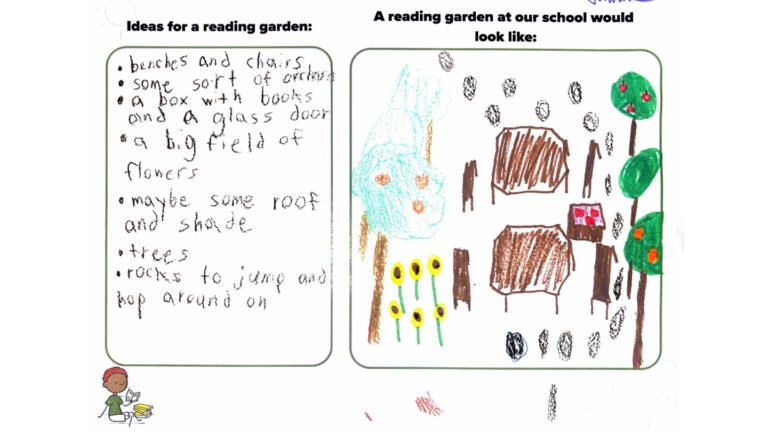 Ideas for a reading garden:
• benches and chairs
• some sort of
• a box with books
and a glass door
• a big field of
flowers
• maybe some roof
and shade
• trees
• rocks to jump and
hop around on
A reading garden at our school would
look like: